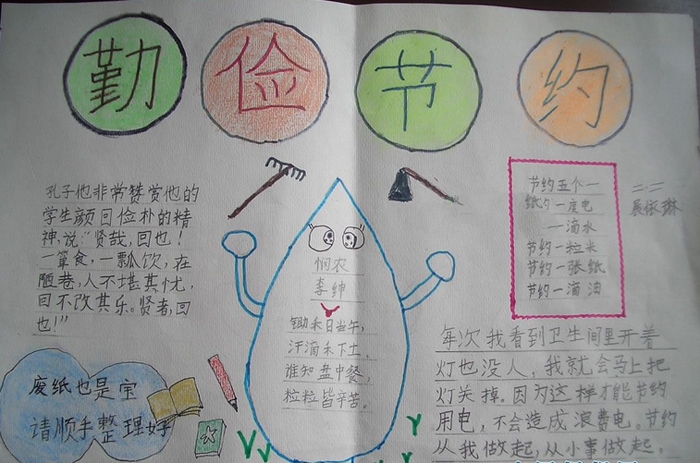 勤俭节约
孔子他非常赞赏他的
学生颜回俭朴的精
神,说:“贤哉,回也!
一箪食,一瓢饮,在
陋巷,人不堪其忧,
回不改其乐。贤者,回
也!”
废纸也是宝
请顺手整理好
悯农
李绅
锄禾日当午,
汗滴禾下土,
谁知盘中餐,
粒粒皆辛苦。
节约五个一
节约一度电
一滴水
节约一粒米
节约一张纸
节约一滴油
二.二
依琳
每次我看到卫生间里开着
灯也没人,我就会马上把
灯关掉。因为这样才能节约
用电,不会造成浪费电。节约
从我做起,从小事做起。